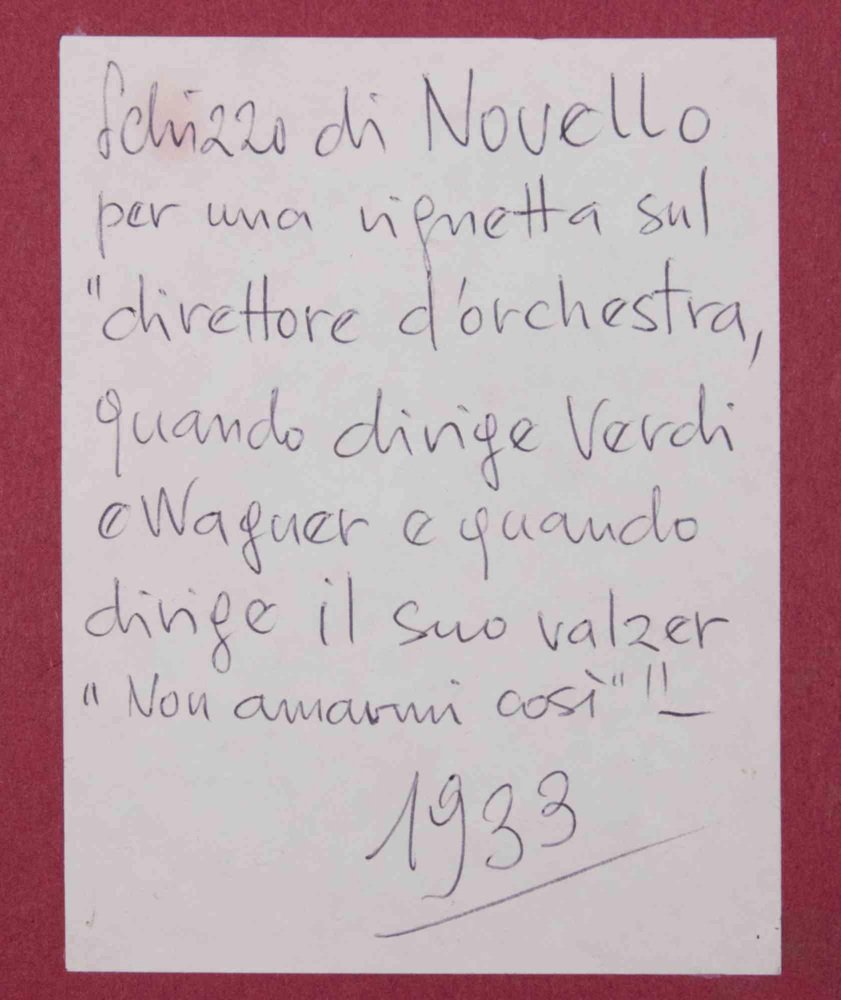 Schizzo di Novello
per una vignetta sul
"direttore d'orchestra,
quando dirige Verdi
e Wagner e quando
dirige il suo valzer
"Non amarmi così"!!
1933